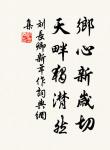 鄉心新歲切
天畔獨潸然
劉長卿新年作詞典網
集